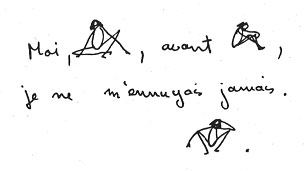 Moi, , avant ,
je ne m'ennuyais jamais.
.